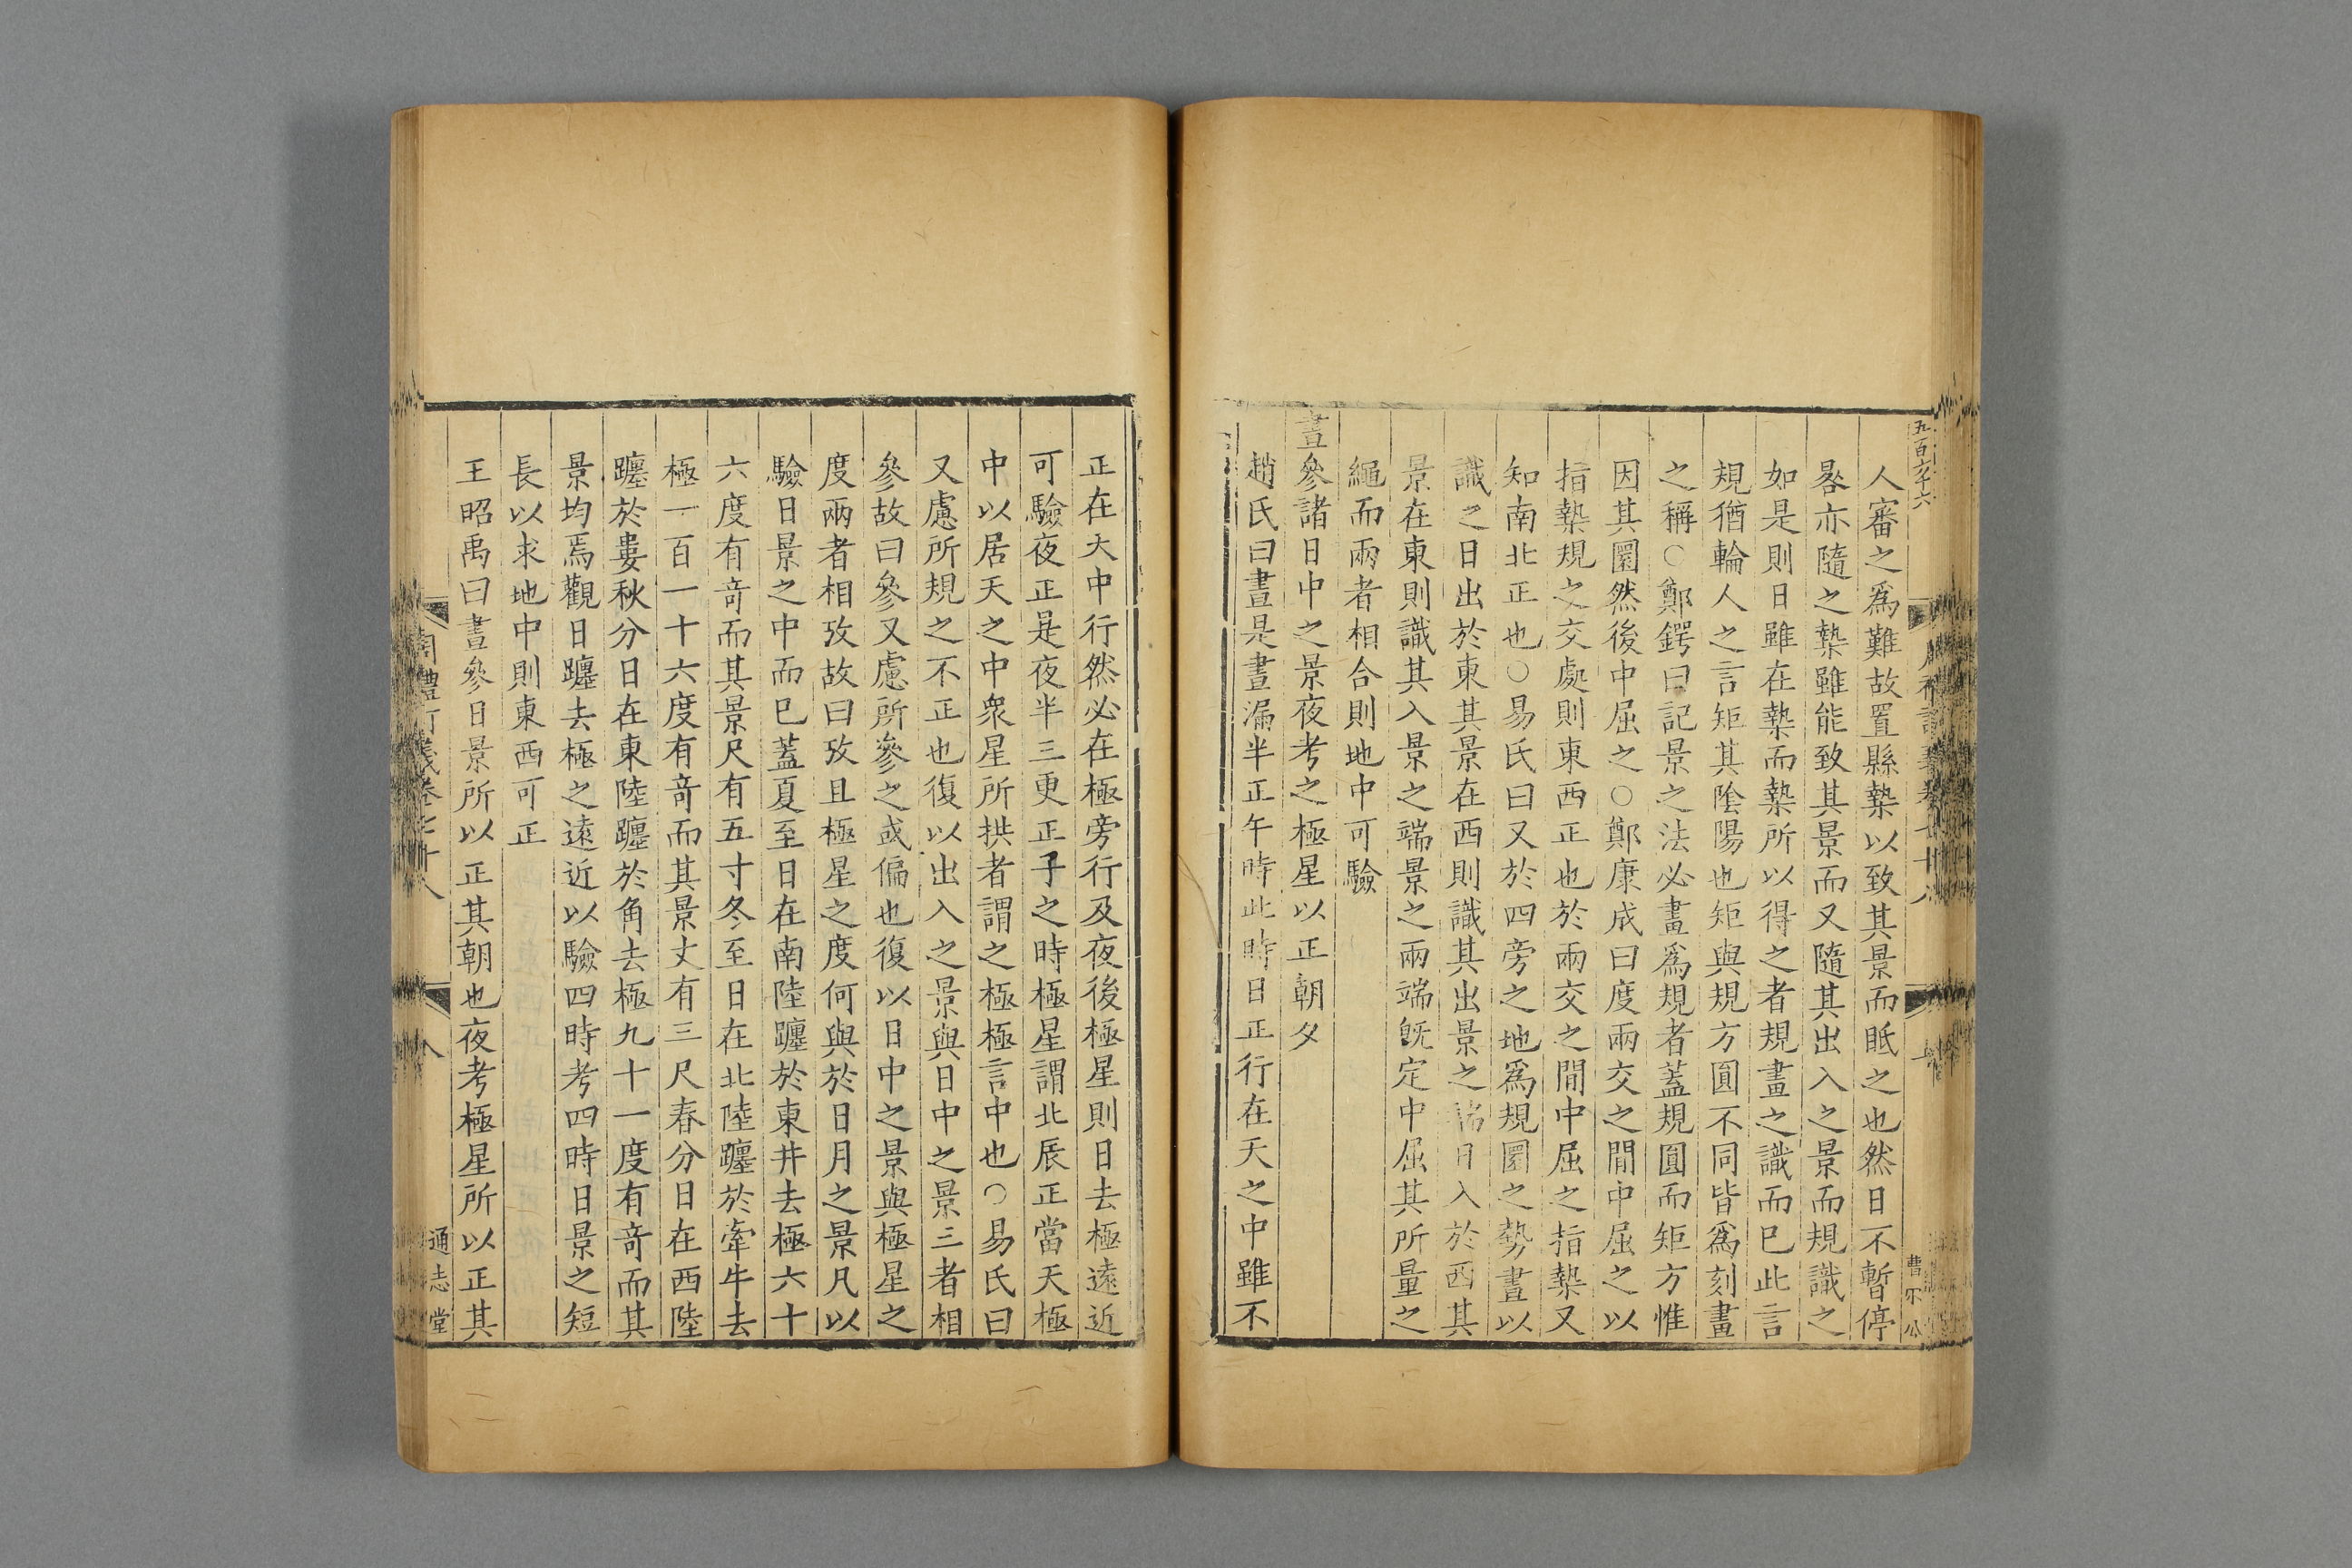 五百六十六
人審之爲難故置縣槷以致其景而眡之也然日不暫停
晷亦隨之槷雖能致其景而又隨其出入之景而規識之
如是則日雖在槷而槷所以得之者規畫之識而已此言
規猶輪人之言矩其陰陽也矩與規方圓不同皆爲刻畫
之稱○鄭鍔曰記景之法必畫爲規者蓋規圓而矩方惟
因其圜然後中屈之○鄭康成曰度兩交之間中屈之以
指槷規之交處則東西正也於兩交之間中屈之指槷又
知南北正也○易氏曰又於四旁之地爲規圜之勢畫以
識之日出於東其景在西則識其出景之端日入於西其
景在東則識其入景之端景之兩端旣定中屈其所量之
繩而兩者相合則地中可驗
晝參諸日中之景夜考之極星以正朝夕
趙氏曰晝是晝漏半正午時此時日正行在天之中雖不
正在大中行然必在極旁行及夜後極星則日去極遠近
可驗夜正是夜半三更正子之時極星謂北辰正當天極
中以居天之中衆星所拱者謂之極極言中也○易氏曰
又慮所規之不正也復以出入之景與日中之景三者相
參故曰參又慮所參之或偏也復以日中之景與極星之
度兩者相攷故曰攷且極星之度何與於日月之景凡以
驗日景之中而已蓋夏至日在南陸躔於東井去極六十
六度有奇而其景尺有五寸冬至日在北陸躔於牽牛去
極一百一十六度有奇而其景丈有三尺春分日在西陸
躔於婁秋分日在東陸躔於角去極九十一度有奇而其
景均焉觀日躔去極之遠近以驗四時考四時日景之短
長以求地中則東西可正
王昭禹曰晝參日景所以正其朝也夜考極星所以正其
八
通志堂